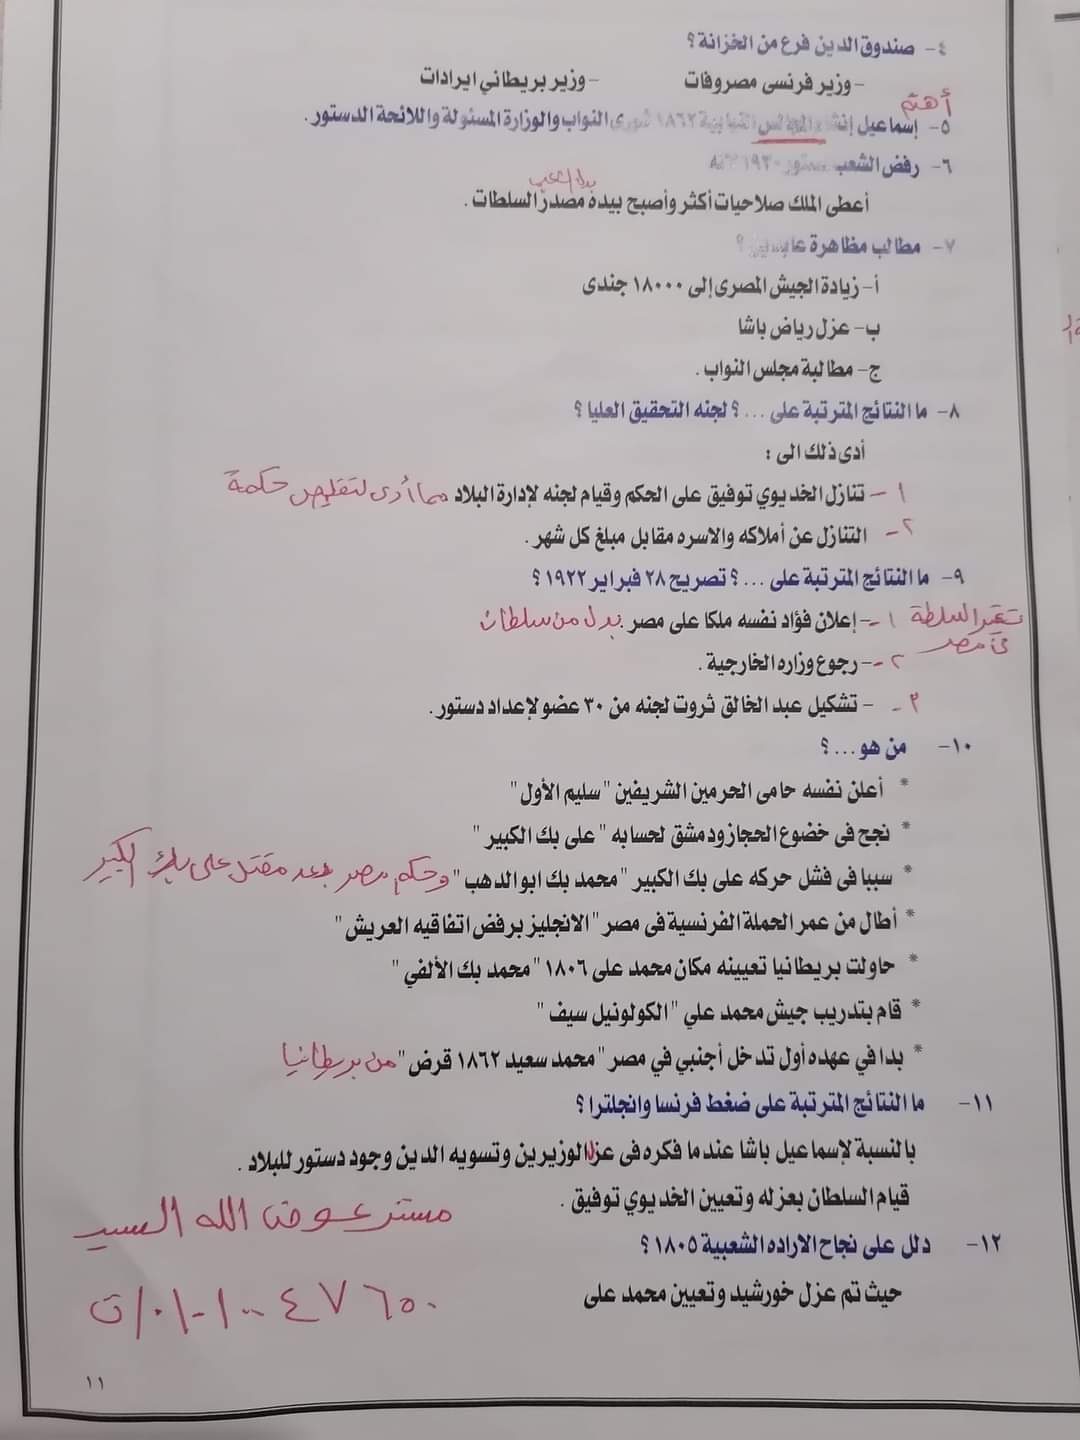 ٤- صندوق الدين فرع من الخزانة؟
- وزير فرنسى مصروفات - وزير بريطاني ايرادات
أهتم
٥- إسماعيل إنشاء المجالس النيابية ١٨٦٢ شورى النواب والوزارة المسئولة واللائحة الدستور.
٦- رفض الشعب دستور ١٩٣٠
بدل الشعب
أعطى الملك صلاحيات أكثر وأصبح بيده مصدر السلطات.
٧- مطالب مظاهرة عابدين؟
أ- زيادة الجيش المصرى إلى ١٨٠٠٠ جندى
ب- عزل رياض باشا
ج- مطالبة مجلس النواب.
٨- ما النتائج المترتبة على ...؟ لجنه التحقيق العليا؟
أدى ذلك الى:
١- تنازل الخديوي توفيق على الحكم وقيام لجنه لإدارة البلاد مما أدى لتقليص حكمة
٢- التنازل عن أملاكه والاسره مقابل مبلغ كل شهر.
٩- ما النتائج المترتبة على ...؟ تصريح ٢٨ فبراير ١٩٢٢؟
تغير السلطة فى مصر ١- إعلان فؤاد نفسه ملكا على مصر. بدل من سلطان
٢- رجوع وزاره الخارجية.
٣- تشكيل عبد الخالق ثروت لجنه من ٣٠ عضو لإعداد دستور.
١٠- من هو ...؟
* أعلن نفسه حامى الحرمين الشريفين "سليم الأول"
* نجح فى خضوع الحجاز ودمشق لحسابه "على بك الكبير"
* سببا فى فشل حركه على بك الكبير "محمد بك ابو الدهب" وحكم مصر بعد مقتل على بك الكبير
* أطال من عمر الحملة الفرنسية فى مصر "الانجليز برفض اتفاقيه العريش"
* حاولت بريطانيا تعيينه مكان محمد على ١٨٠٦ "محمد بك الألفي"
* قام بتدريب جيش محمد علي "الكولونيل سيف"
* بدا في عهده أول تدخل أجنبي في مصر "محمد سعيد ١٨٦٢ قرض" من بريطانيا
١١- ما النتائج المترتبة على ضغط فرنسا وانجلترا؟
بالنسبة لإسماعيل باشا عندما فكره فى عزل الوزيرين وتسويه الدين وجود دستور للبلاد.
قيام السلطان بعزله وتعيين الخديوي توفيق.
مستر عوض الله السيد
١٢- دلل على نجاح الاراده الشعبية ١٨٠٥؟
حيث تم عزل خورشيد وتعيين محمد على
١١